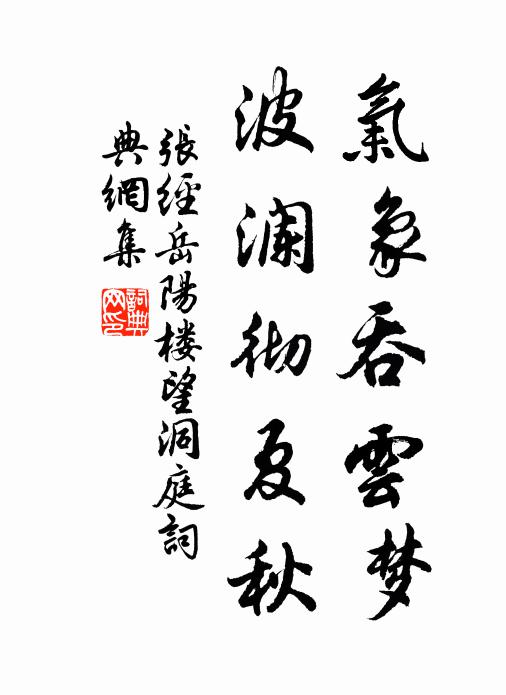 氣象吞雲梦
波澜彻夏秋
張經岳陽楼望洞庭詞
典網集
詞典
网印